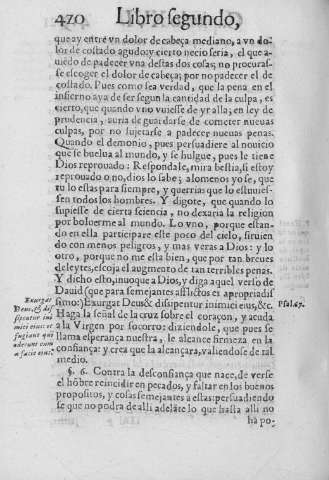 420 Libro segundo,
que ay entre vn dolor de cabeça mediano, a vn do-
lor de costado agudo; y cierto necio seria, el que a-
uiẽdo de padecer vna destas dos cosas; no procuras-
se escoger el dolor de cabeça; por no padecer el de
costado. Pues como sea verdad, que la pena en el
infierno aya de ser segun la cantidad de la culpa, es
cierto, que quando vno vuiesse de yr alla; en ley de
prudencia, auria de guardarse de cometer nueuas
culpas, por no sujetarse a padecer nueuas penas.
Quando el demonio, pues persuadiere al nouicio
que se buelua al mundo, y se hulgue, pues le tiene
Dios reprouado: Respondale, mira bestia, si estoy
reprouado o no, dios lo sabe; alomenos yo se, que
tu lo estas para siempre, y querrias que lo estuuies-
sen todos los hombres. Y digote, que quando lo
supiesse de cierta sciencia, no dexaria la religion
por boluerme al mundo. Lo vno, porque estan-
do en ella participante por esto del cielo, siruien
do con menos peligros, y mas veras a Dios: y lo
otro, porque no me esta bien, que por tan breues
deleytes, escoja el augmento de tan terribles penas.
Y dicho esto, inuoque a Dios, y diga aquel verso de
Dauid (que para semejantes afflictos es apropriadis
simo:) Exurgat Deus & disipentur inimici eius, &c.
Psal. 67.
Haga la señal de la cruz sobre el coraçon, y acuda
a la Virgen por socorro: diziendole, que pues se
llama esperança nuestra, le alcance firmeza en la
confiança: y crea que la alcançara, valiendose de tal
medio.
Exurgat
Deus, & dis
sipentur ini
mici eius: et
fugiant qui
oderunt eum
a facie eius.
§. 6. Contra la desconfiança que nace, de verse
el hõbre reincidir en pecados, y faltar en los buenos
propositos, y cosas semejantes a estas: persuadiendo
se que no podra de alli adelãte lo que hasta alli no
ha po-